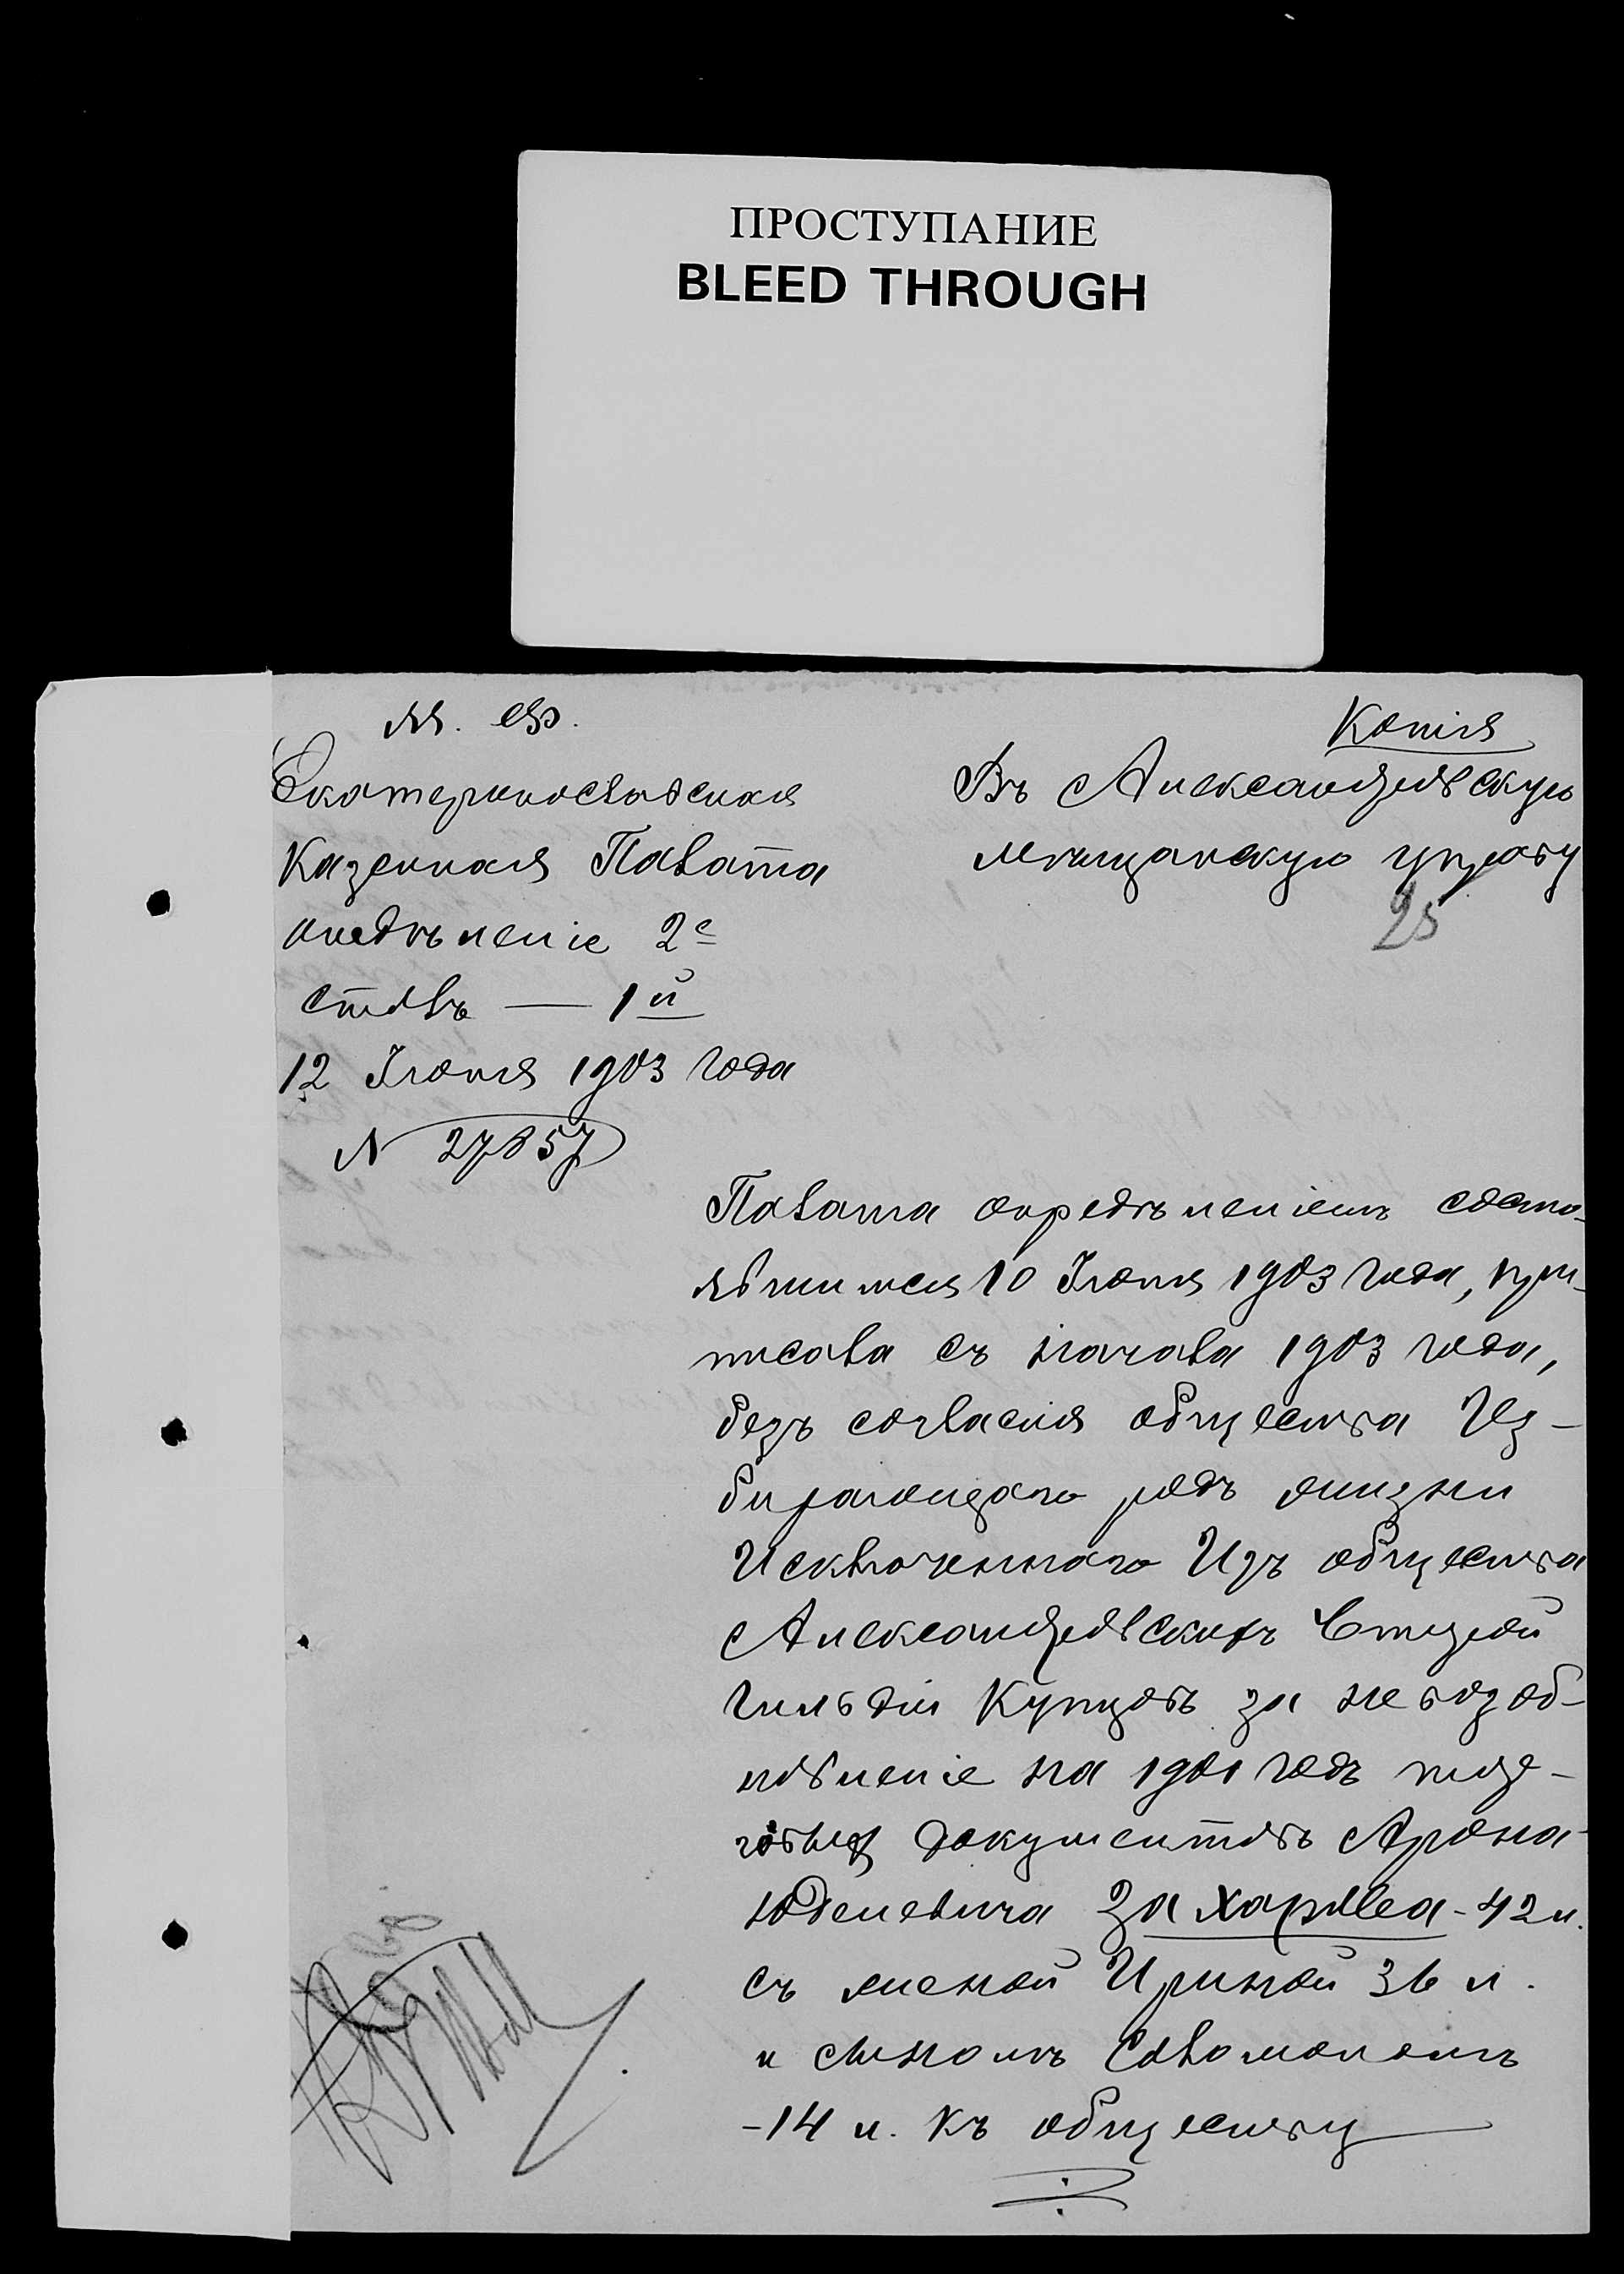 ПРОСТУПАНИЕ
BLEED THROUGH
М. Ф.
Копія
Екатеринославская
Казенная Палата
отдѣленіе 2е
столъ — 1й
12 Іюня 1903 года
N 27857
Въ Александровскую
мѣщанскую управу
25
Палата опредѣленіемъ состо-
явшимся 10 Іюня 1903 года, при-
писала съ начала 1903 года,
безъ согласія общества Из-
бирающаго родъ жизни
Исключеннаго Изъ общества
Александровскихъ Второй
гильдіи Купцовъ за невозоб-
новленіе на 1901 годъ торго-
выхъ документовъ Арона
Юделевича За харьеа - 42 л.
съ женой Ириной 36 л.
и сыномъ Соломономъ
- 14 л. къ обществу